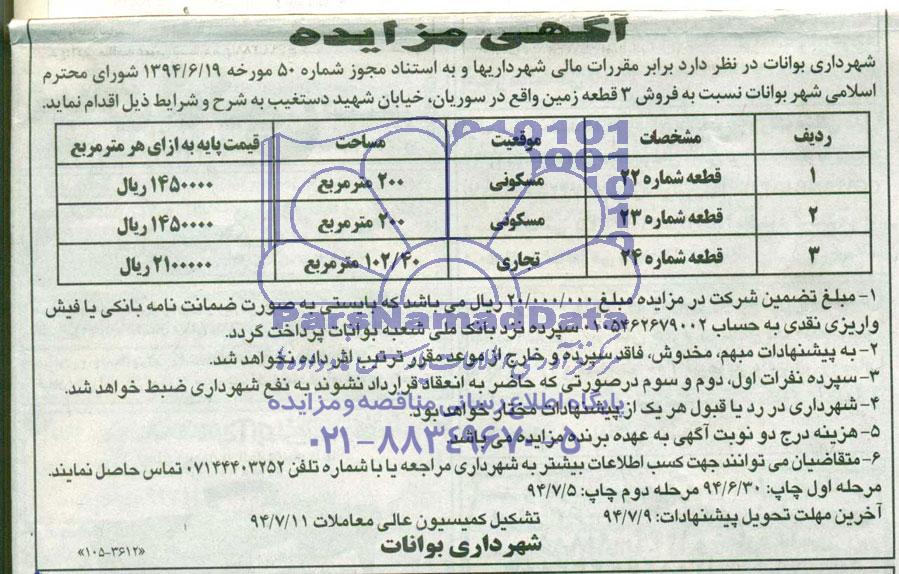 آگهی مزایده
شهرداری بوانات در نظر دارد برابر مقررات مالی شهرداریها و به استناد مجوز شماره ۵۰ مورخه ۱۳۹۴/۶/۱۹ شورای محترم
اسلامی شهر بوانات نسبت به فروش ۳ قطعه زمین واقع در سوریان، خیابان شهید دستغیب به شرح و شرایط ذیل اقدام نماید.
ردیف مشخصات موقعیت مساحت قیمت پایه به ازای هر مترمربع
۱ قطعه شماره ۲۲ مسکونی ۲۰۰ مترمربع ۱۴۵۰۰۰۰ ریال
۲ قطعه شماره ۲۳ مسکونی ۲۰۰ مترمربع ۱۴۵۰۰۰۰ ریال
۳ قطعه شماره ۲۴ تجاری ۱۰۲/۴۰ مترمربع ۲۱۰۰۰۰۰ ریال
۱- مبلغ تضمین شرکت در مزایده مبلغ ۲۰/۰۰۰/۰۰۰ ریال می باشد که بایستی به صورت ضمانت نامه بانکی یا فیش
واریزی نقدی به حساب ۰۱۰۵۴۶۲۶۷۹۰۰۲ سپرده نزد بانک ملی شعبه بوانات پرداخت گردد.
۲- به پیشنهادات مبهم، مخدوش، فاقد سپرده و خارج از موعد مقرر ترتیب اثر داده نخواهد شد.
۳- سپرده نفرات اول، دوم و سوم درصورتی که حاضر به انعقاد قرارداد نشوند به نفع شهرداری ضبط خواهد شد.
۴- شهرداری در رد یا قبول هر یک از پیشنهادات مختار خواهد بود.
۵- هزینه درج دو نوبت آگهی به عهده برنده مزایده می باشد.
۶- متقاضیان می توانند جهت کسب اطلاعات بیشتر به شهرداری مراجعه یا با شماره تلفن ۰۷۱۴۴۴۰۳۲۵۲ تماس حاصل نمایند.
مرحله اول چاپ: ۹۴/۶/۳۰ مرحله دوم چاپ: ۹۴/۷/۵
آخرین مهلت تحویل پیشنهادات: ۹۴/۷/۹ تشکیل کمیسیون عالی معاملات ۹۴/۷/۱۱
شهرداری بوانات
«۱۰۵-۳۶۱۲»
ParsNamadData
پایگاه اطلاع رسانی مناقصه و مزایده
۰۲۱-۸۸۳۴۹۶۷۰-۵